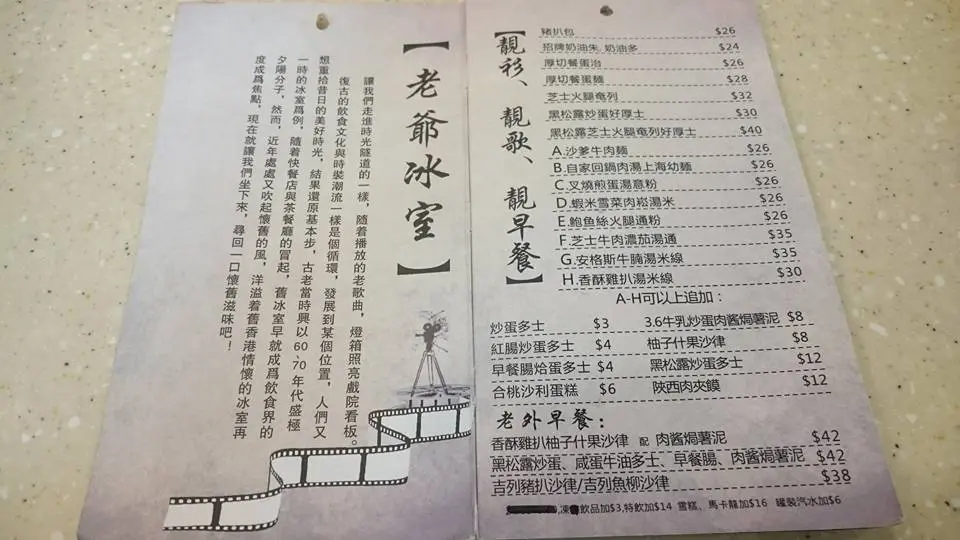 【老爺冰室】
讓我們走進時光隧道的一樣，隨着播放的老歌曲，燈箱照亮戲院看板。
復古的飲食文化與時裝潮流一樣是個循環，發展到某個位置，人們又
想重拾昔日的美好時光，結果還原基本步，古老當時興以60、70年代盛極
一時的冰室爲例，隨着快餐店與茶餐廳的冒起，舊冰室早就成爲飲食界的
夕陽分子，然而，近年處處又吹起懷舊的風，洋溢着舊香港情懷的冰室再
度成爲焦點，現在就讓我們坐下來，尋回一口懷舊滋味吧！
【靚衫、靚歌、靚早餐】
豬扒包 $26
招牌奶油朱,奶油多 $24
厚切餐蛋治 $26
厚切餐蛋麵 $28
芝士火腿奄列 $32
黑松露炒蛋好厚士 $30
黑松露芝士火腿奄列好厚士 $40
A.沙爹牛肉麵 $26
B.自家回鍋肉湯上海幼麵 $26
C.叉燒煎蛋湯意粉 $26
D.蝦米雪菜肉崧湯米 $26
E.鮑魚絲火腿通粉 $26
F.芝士牛肉濃茄湯通 $35
G.安格斯牛腩湯米線 $35
H.香酥雞扒湯米線 $30
A-H可以上追加：
炒蛋多士 $3 3.6牛乳炒蛋肉醬焗薯泥 $8
紅腸炒蛋多士 $4 柚子什果沙律 $8
早餐腸烚蛋多士 $4 黑松露炒蛋多士 $12
合桃沙利蛋糕 $6 陝西肉夾饃 $12
老外早餐：
香酥雞扒柚子什果沙律 配 肉醬焗薯泥 $42
黑松露炒蛋、咸蛋牛油多士、早餐腸、肉醬焗薯泥 $42
吉列豬扒沙律/吉列魚柳沙律 $38
,凍飲品加$3,特飲加$14 雪糕、馬卡龍加$16 罐裝汽水加$6